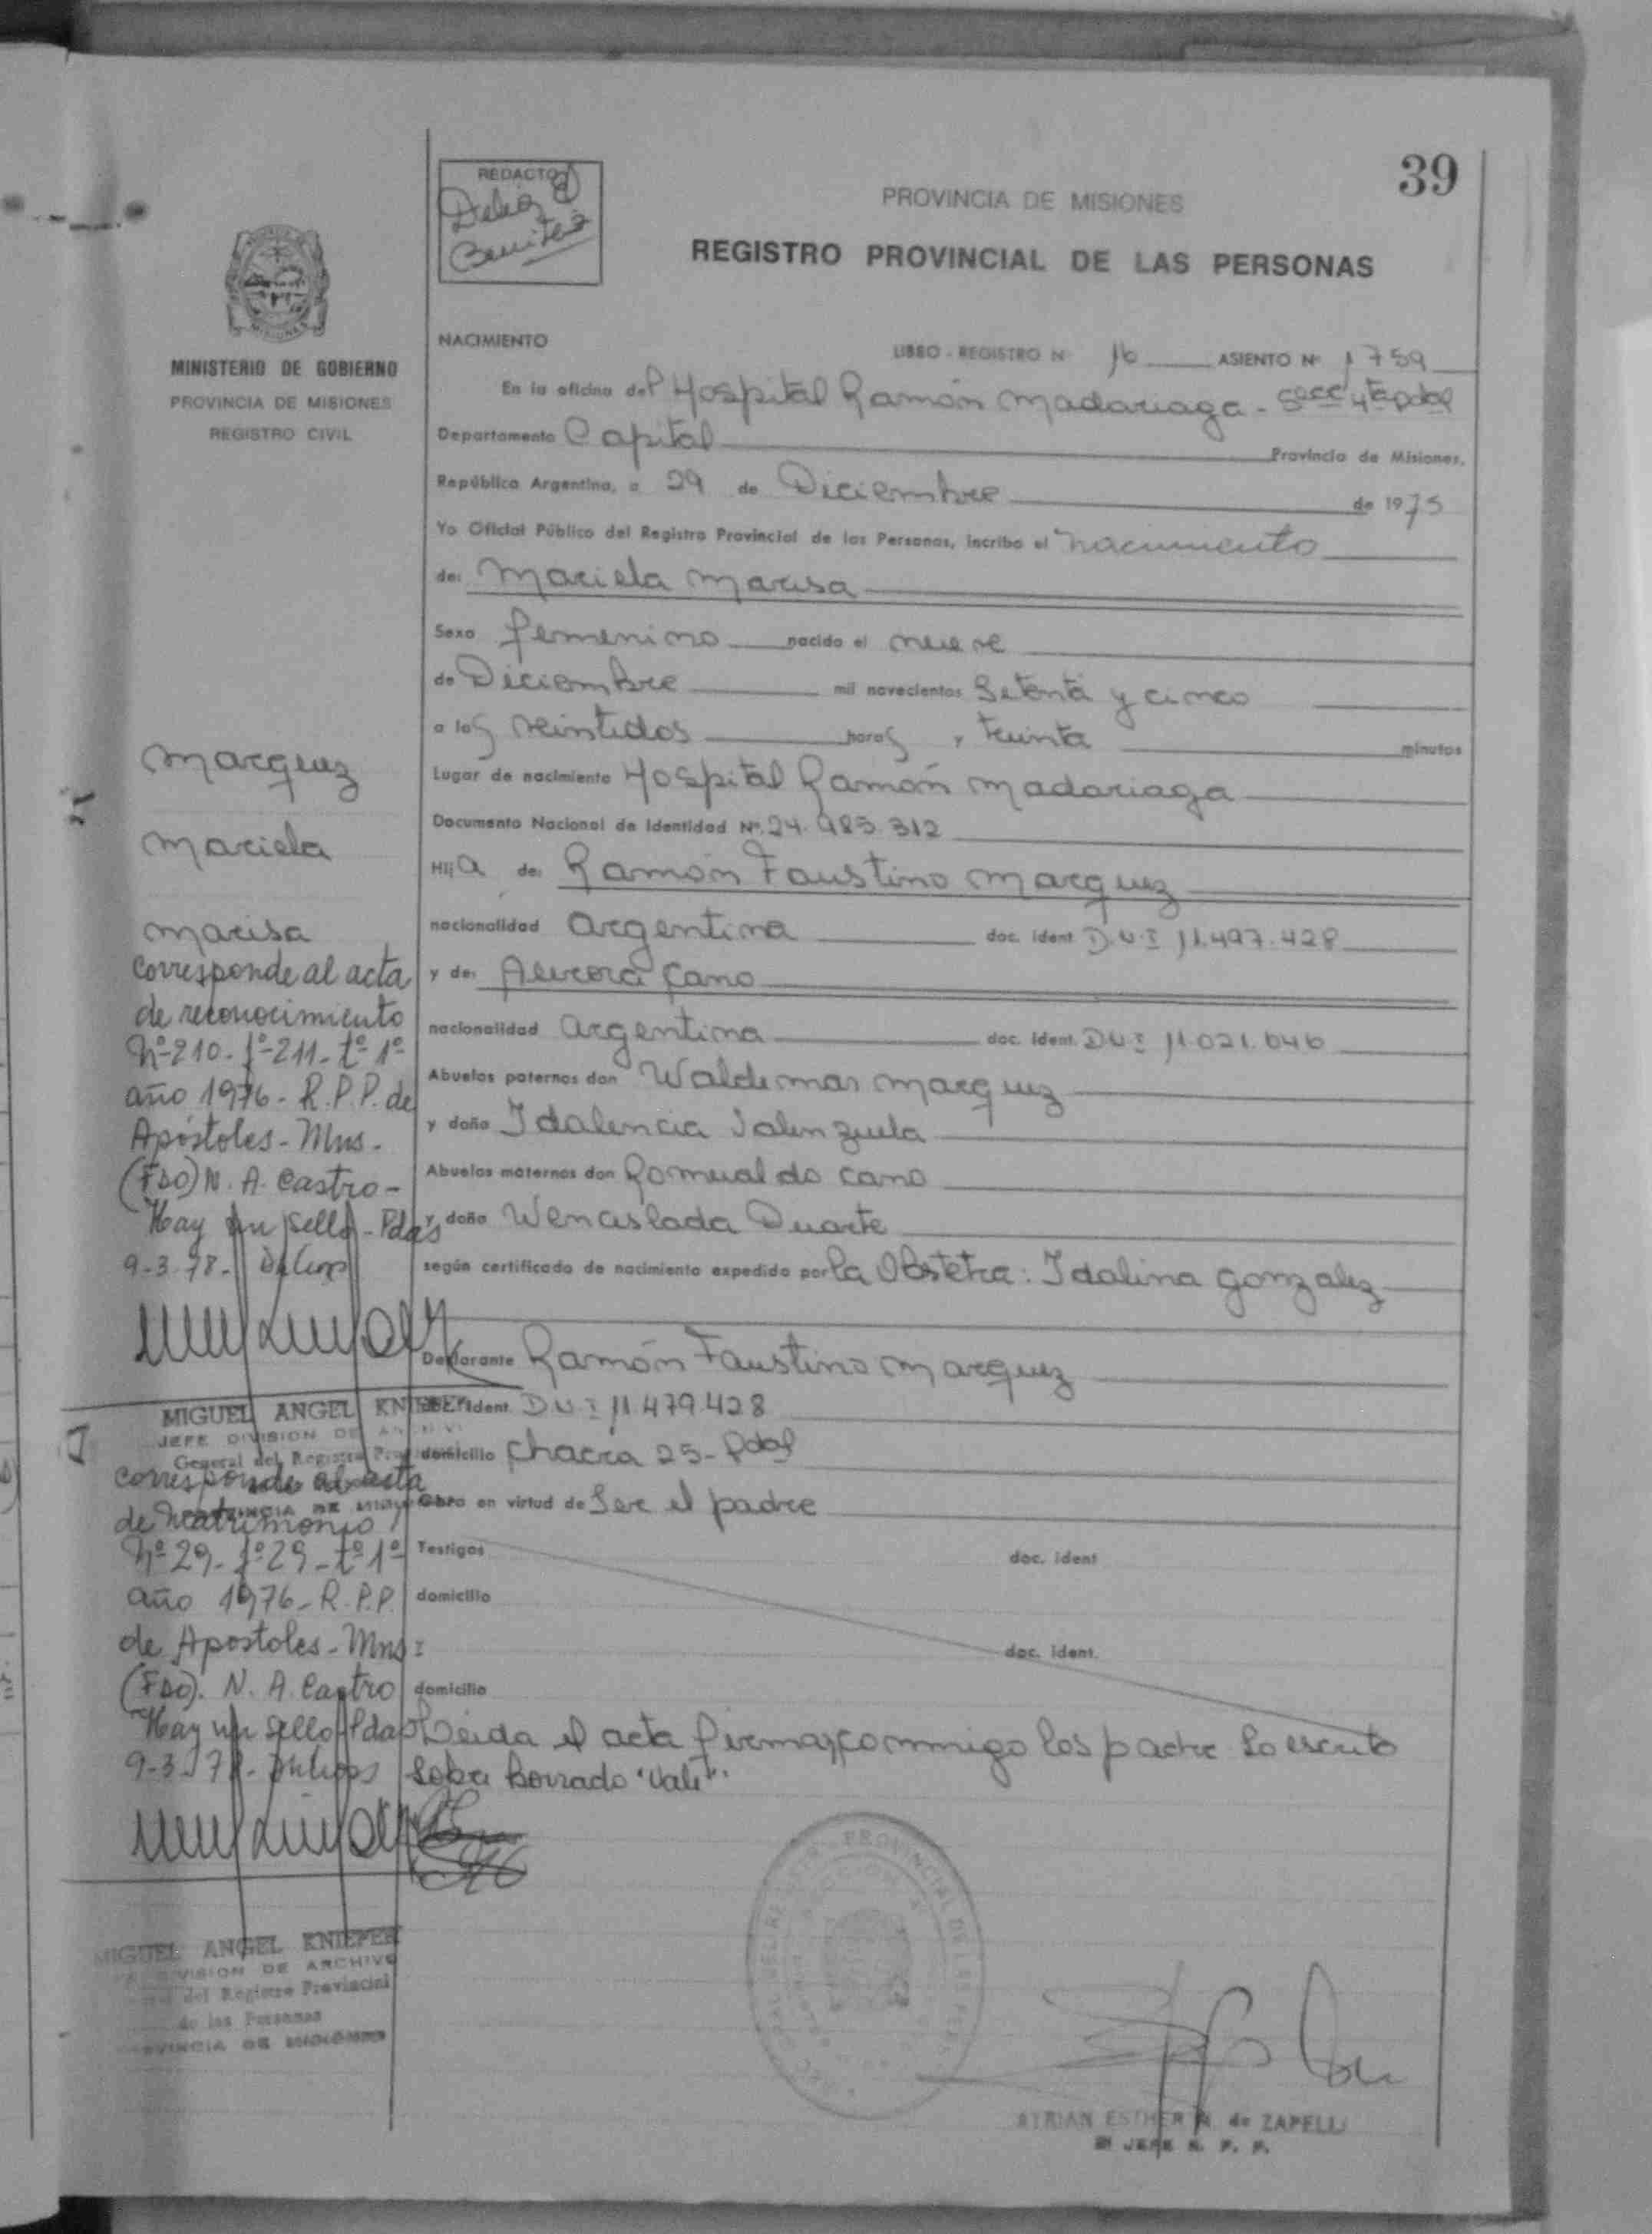 39
REDACTO
Delia
Benitez
PROVINCIA DE MISIONES
REGISTRO PROVINCIAL DE LAS PERSONAS
MISIONES
MINISTERIO DE GOBIERNO
PROVINCIA DE MISIONES
REGISTRO CIVIL
NACIMIENTO
LIBRO - REGISTRO Nº 16 ASIENTO Nº 1759
En la oficina del Hospital Ramón Madariaga - Secc 4ta Pdas
Departamento Capital Provincia de Misiones,
República Argentina, a 29 de Diciembre de 1975
Yo Oficial Público del Registro Provincial de las Personas, incribo el nacimiento
de: Mariela Marisa
Sexo femenino nacido el nueve
de Diciembre mil novecientos Setenta y cinco
a las veintidos horas y treinta minutos
Lugar de nacimiento Hospital Ramón Madariaga
Documento Nacional de Identidad Nº 24.985.312
Hija de: Ramón Faustino Marquez
nacionalidad argentina doc. ident D.N.I 11.497.428
y de: Aurora Cano
nacionalidad argentina doc. ident. DNI 11.021.046
Abuelos paternos don Waldemar Marquez
y doña Idalencia Valenzuela
Abuelos maternos don Romualdo Cano
y doña Wenceslada Duarte
según certificado de nacimiento expedido por la Obstetra: Idalina Gonzalez
Declarante Ramón Faustino Marquez
doc. ident. DNI 11.479.428
domicilio Chacra 25 - Pdas
Obra en virtud de Ser el padre
Testigos doc. ident
domicilio
doc. ident.
domicilio
Leida el acta firman conmigo los padre Lo escrito
sobre borrado "Vale".
Marquez
Mariela
Marisa
Corresponde al acta
de reconocimiento
Nº 210 - fº 211 - tº 1º
año 1976 - R.P.P. de
Apóstoles - Mns -
(FDO) N. A. Castro -
Hay un sello - Pdas
9-3-78 -
MIGUEL ANGEL KNIEPER
JEFE DIVISION DE ARCHIVO
General del Registro Provincial
PROVINCIA DE MISIONES
Corresponde al acta
de Matrimonio
Nº 29 - fº 29 - tº 1º
año 1976 - R.P.P.
de Apostoles - Mns:
(FDO). N. A. Castro
Hay un sello Pdas
9-3-78 -
MIGUEL ANGEL KNIEPER
DIVISION DE ARCHIVO
del Registro Provincial
de las Personas
PROVINCIA DE MISIONES
PROVINCIAL DE LAS
ESTHER de ZAPELLI
JEFE R. P. P.